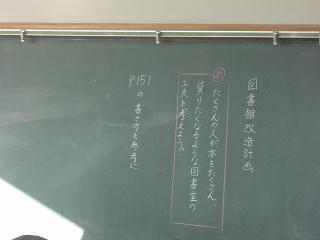 図書館改造計画
め たくさんの人が本をたくさん、
借りたくなるような図書室の
工夫を考えよう。
P151
の書き方を参考に